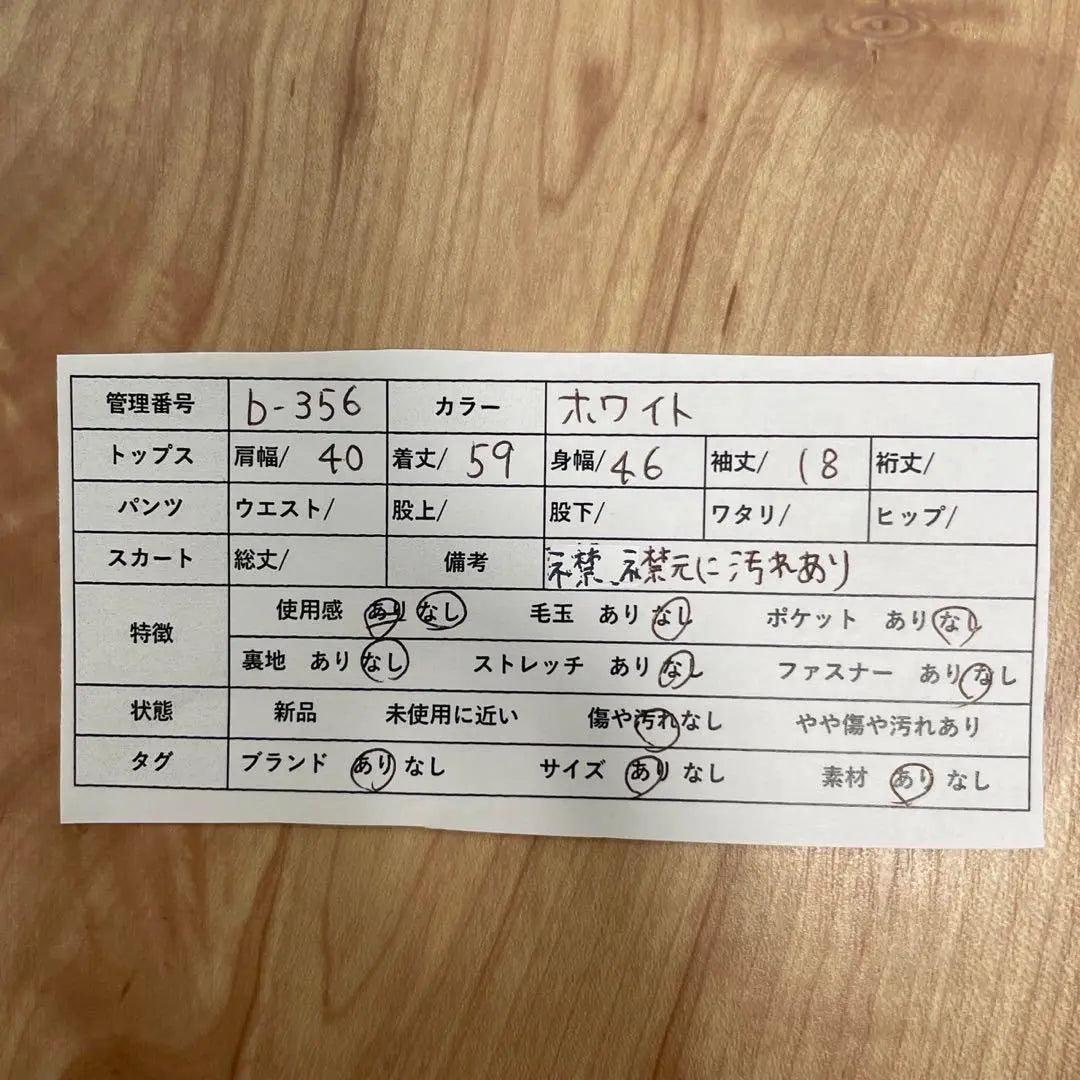 管理番号 b-356 カラー ホワイト
トップス 肩幅/ 40 着丈/ 59 身幅/ 46 袖丈/ 18 裄丈/
パンツ ウエスト/ 股上/ 股下/ ワタリ/ ヒップ/
スカート 総丈/ 備考 元に汚れあり
特徴 使用感 あり なし 毛玉 あり なし ポケット あり なし
裏地 あり なし ストレッチ あり なし ファスナー あり なし
状態 新品 未使用に近い 傷や汚れなし やや傷や汚れあり
タグ ブランド あり なし サイズ あり なし 素材 あり なし